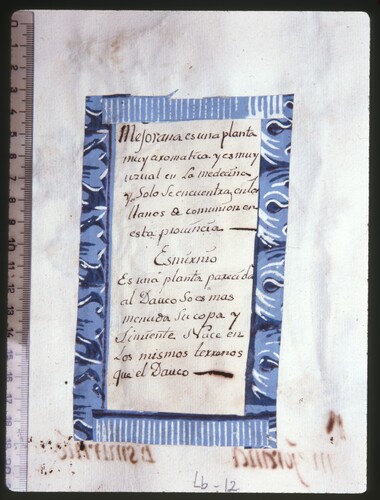 Mejorana es una planta
muy aromatica y es muy
uzual en la medecina
y Solo Se encuentra en los
llanos de comunion en
esta provincia
Esmirnio
Es una planta parecida
al Dauco So es mas
menuda Su copa y
Simiente Nace en
los mismos terrenos
que el Dauco
Lb - 12